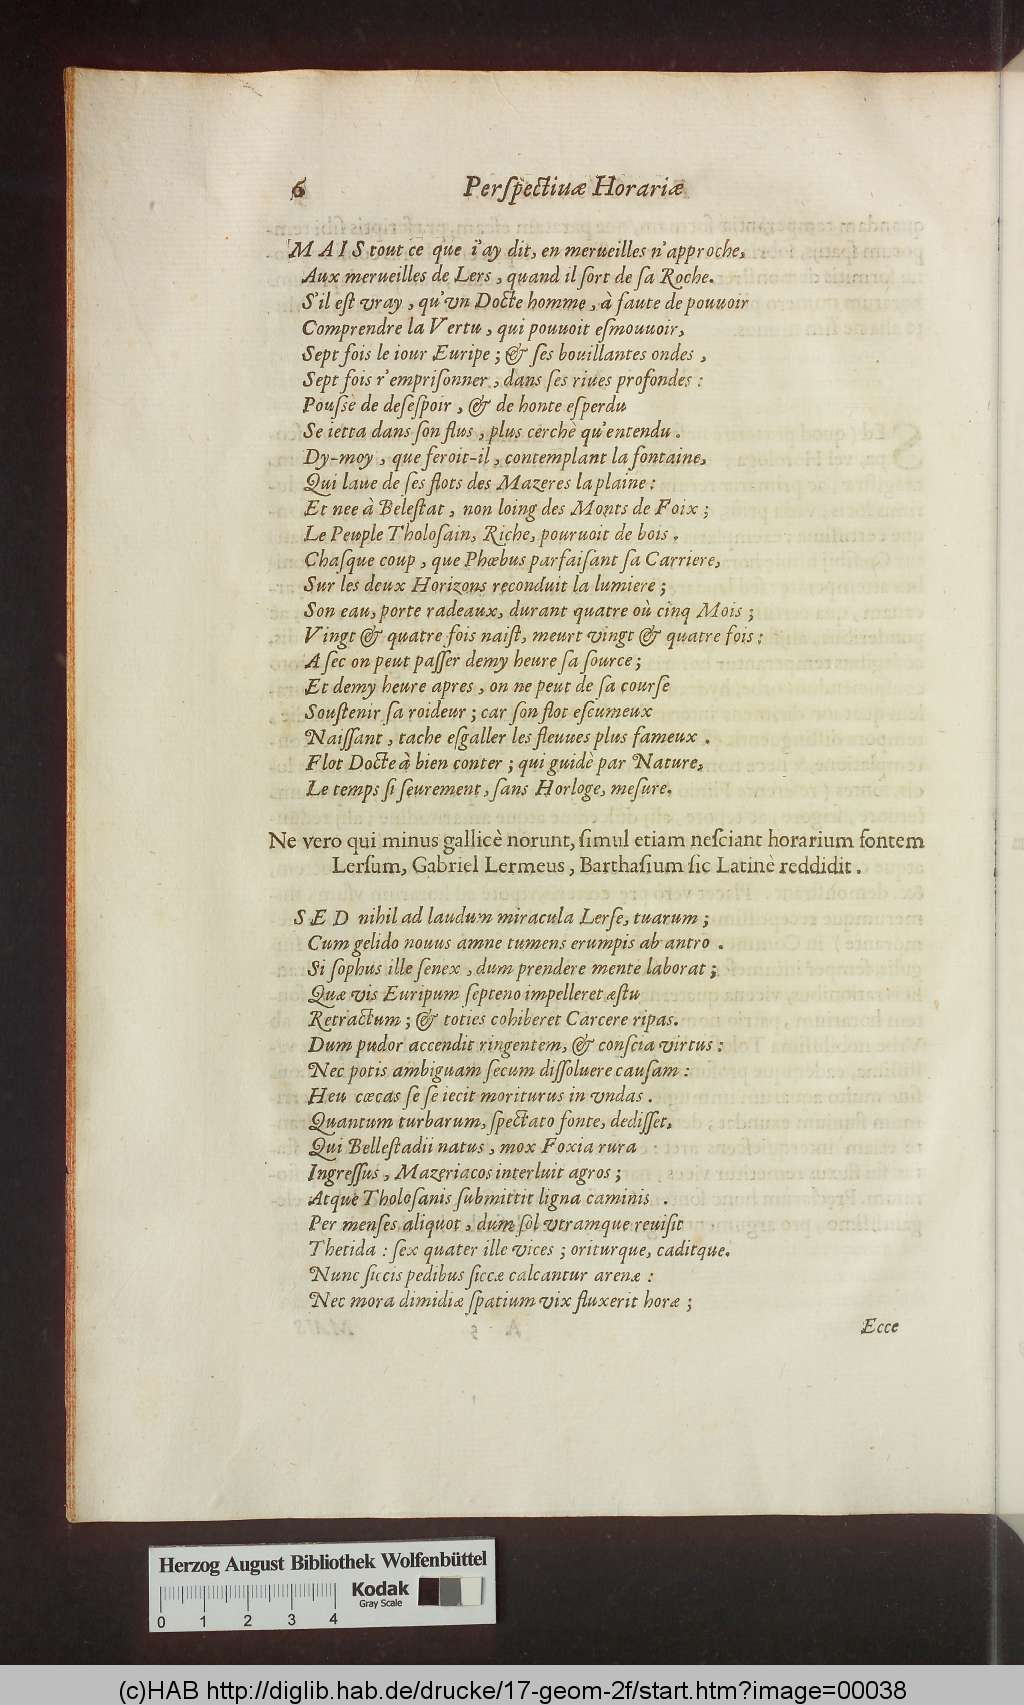 6 Perſpectiuæ Horariæ
MAIS tout ce que i'ay dit, en merueilles n'approche,
Aux merueilles de Lers, quand il ſort de ſa Roche.
S'il eſt vray, qu'vn Docte homme, à faute de pouuoir
Comprendre la Vertu, qui pouuoit eſmouuoir,
Sept fois le iour Euripe; & ſes bouillantes ondes,
Sept fois r'empriſonner, dans ſes riues profondes:
Pouſsè de deſeſpoir, & de honte eſperdu
Se ietta dans ſon flus, plus cerchè qu'entendu.
Dy-moy, que feroit-il, contemplant la fontaine,
Qui laue de ſes flots des Mazeres la plaine:
Et nee à Beleſtat, non loing des Monts de Foix;
Le Peuple Tholoſain, Riche, pouruoit de bois.
Chaſque coup, que Phœbus parfaiſant ſa Carriere,
Sur les deux Horizons reconduit la lumiere;
Son eau, porte radeaux, durant quatre où cinq Mois;
Vingt & quatre fois naiſt, meurt vingt & quatre fois:
A ſec on peut paſſer demy heure ſa ſource;
Et demy heure apres, on ne peut de ſa courſe
Souſtenir ſa roideur; car ſon flot eſcumeux
Naiſſant, tache eſgaller les fleuues plus fameux.
Flot Docte à bien conter; qui guidè par Nature,
Le temps ſi ſeurement, ſans Horloge, meſure.
Ne vero qui minus gallicè norunt, ſimul etiam neſciant horarium fontem
Lerſum, Gabriel Lermeus, Barthaſium ſic Latinè reddidit.
SED nihil ad laudum miracula Lerſe, tuarum;
Cum gelido nouus amne tumens erumpis ab antro.
Si ſophus ille ſenex, dum prendere mente laborat;
Quæ vis Euripum ſepteno impelleret æſtu
Retractum; & toties cohiberet Carcere ripas.
Dum pudor accendit ringentem, & conſcia virtus:
Nec potis ambiguam ſecum diſſoluere cauſam:
Heu cæcas ſe ſe iecit moriturus in vndas.
Quantum turbarum, ſpectato fonte, dediſſet,
Qui Belleſtadii natus, mox Foxia rura
Ingreſſus, Mazeriacos interluit agros;
Atque Tholoſanis ſubmittit ligna caminis.
Per menſes aliquot, dum ſol vtramque reuiſit
Thetida: ſex quater ille vices; oriturque, caditque.
Nunc ſiccis pedibus ſiccæ calcantur arenæ:
Nec mora dimidiæ ſpatium vix fluxerit horæ;
Ecce
Herzog August Bibliothek Wolfenbüttel
Kodak
Gray Scale
0 1 2 3 4
(c)HAB http://diglib.hab.de/drucke/17-geom-2f/start.htm?image=00038